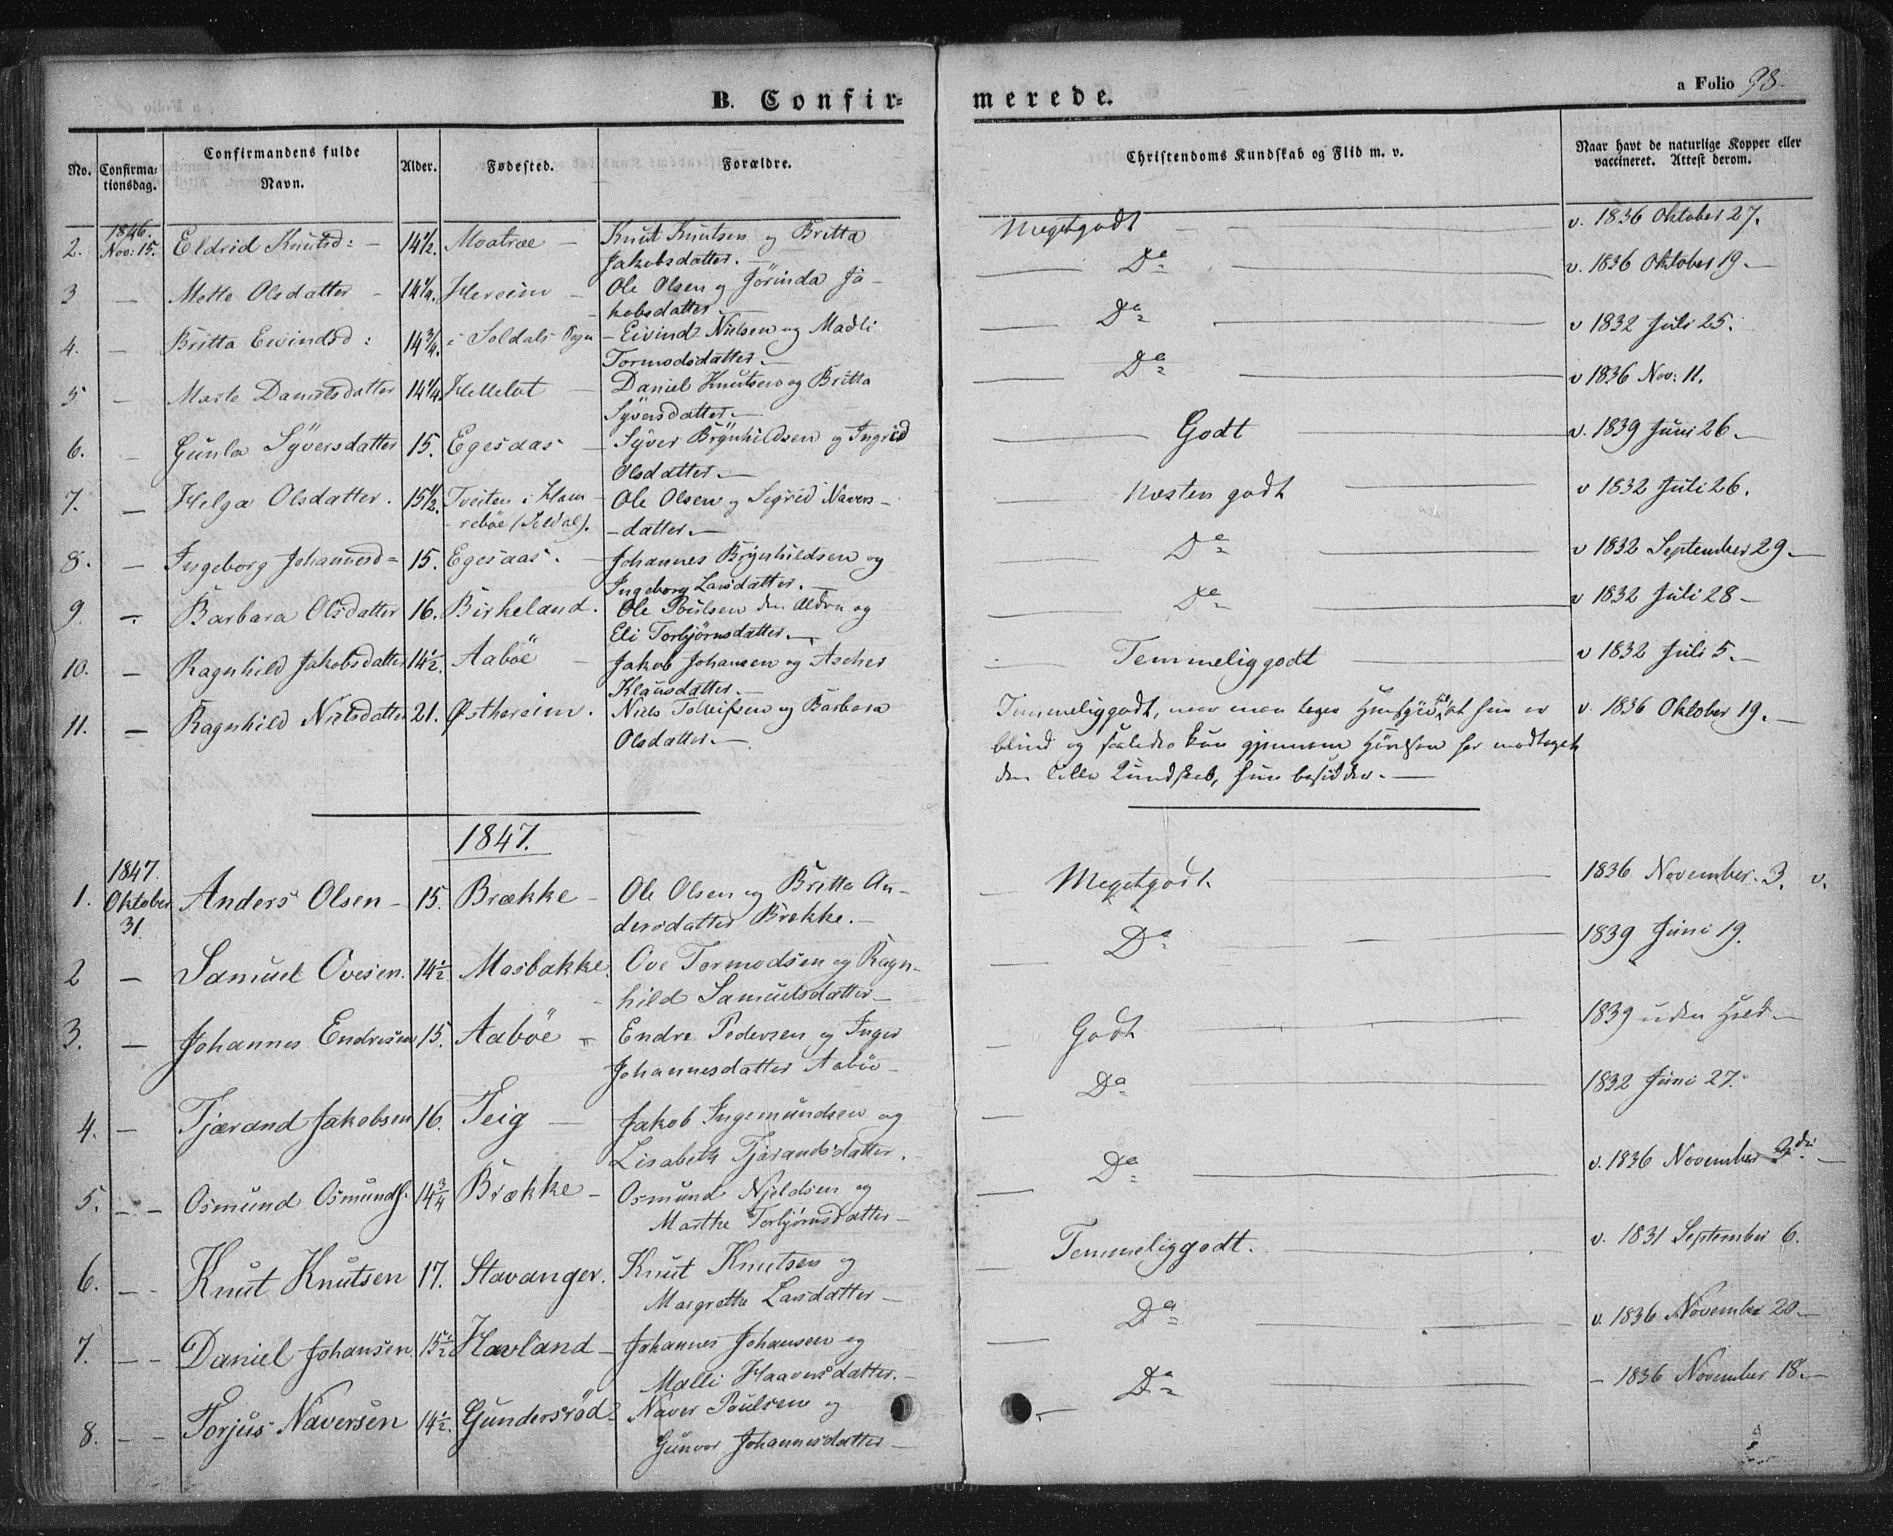 B. Confir=
merede.
a Folio 98.
No.
Confirma=
tionsdag.
Confirmandens fulde
Navn.
Alder.
Fødested.
Forældre.
Christendoms Kundskab og Flid m. v.
Naar havt de naturlige Kopper eller
vaccineret. Attest derom.
1846.
2. Nov: 15. Eldrid Knutsd: - 14 1/2. Moatræ - Knut Knutsen og Britta
Jakobsdatter. -
Megetgodt
v. 1836 Oktober 27.
3 - Mette Olsdatter - 14 1/4. Hereim - Ole Olsen og Jörinda Ja-
kobsdatter
Do
v. 1836 Oktober 19 -
4. - Britta Eivindsd: 14 3/4. i Soldals Sogn - Eivind Nielsen og Madli
Tormodsdatter -
Do
v 1832 Juli 25.
5 - Marte Danielsdatter 14 1/4. Hellelat - Daniel Knutsen og Britta
Syversdatter -
Do
v 1836 Nov: 11.
6. - Gunla Syversdatter 15. Egesaas - Syver Brynhildsen og Ingrid
Olsdatter. -
Godt
v. 1839 Juni 26 -
7. - Helga Olsdatter. 15 1/2. Tveiten i Ham-
rebøe (Soldal). Ole Olsen og Sigrid Navers-
- datter. -
Næsten godt
v 1832 Juli 26.
8. - Ingeborg Johannesd= 15. Egesaas. - Johannes Brynhildsen og
Ingeborg Larsdatter. -
Do
v 1832 September 29 -
9. - Barbara Olsdatter 16. Birkeland. Ole Poulsen den Ældre og
Eli Torbjørnsdatter. -
Do
v 1832 Juli 28 -
10. - Ragnhild Jakobsdatter 14 1/2. Aabøe - Jakob Johansen og Ascher
Klausdatter. -
Temmeliggodt
v 1832 Juli 5. -
11. - Ragnhild Nielsdatter 21. Østhereim. Niels Tolleifsen og Barbara
Olsdatter. -
Temmeliggodt, naar man tager Hensyn til at hun er
blind og saaledes kun gjennem Hørelsen har modtaget
den lille Kundskab, hun besidder. -
v. 1836 Oktober 19. -
1847.
1847.
1. Oktober
31.
Anders Olsen - 15. Brække - Ole Olsen og Britta An-
dersdatter Brekke. -
Megetgodt.
1836 November 3. v.
2 - Samuel Ovesen. 14 1/2. Mosbakke Ove Tormodsen og Ragn-
hild Samuelsdatter -
Do
1839 Juni 19.
3. - Johannes Endresen 15. Aabøe - Endre Pedersen og Inger
Johannesdatter Aabøe -
Godt
1839 uden Held -
4. - Tjærand Jakobsen 16. Teig - Jakob Ingemundsen og
Lisabeth Tjærandsdatter.
Do
1832 Juni 27.
5. - - Osmund Osmunds. 14 3/4 Brække - Osmund Njeldsen og
Marthe Torbjørnsdatter -
Do
v. 1836 November 3die -
6. - - Knut Knutsen 17. Stavanger. Knut Knutsen og
Margrethe Larsdatter -
Temmeliggodt.
v. 1831 September 6.
7. - - Daniel Johansen 15 1/2 Havland - Johannes Johansen og
Malli Haaversdatter. -
Do
v. 1836 November 20 -
8. - - Torjus Naversen 14 1/2. Gundersröd - Naver Poulsen og
Gunvor Johannesdatter -
Do
- 1836 November 18. -